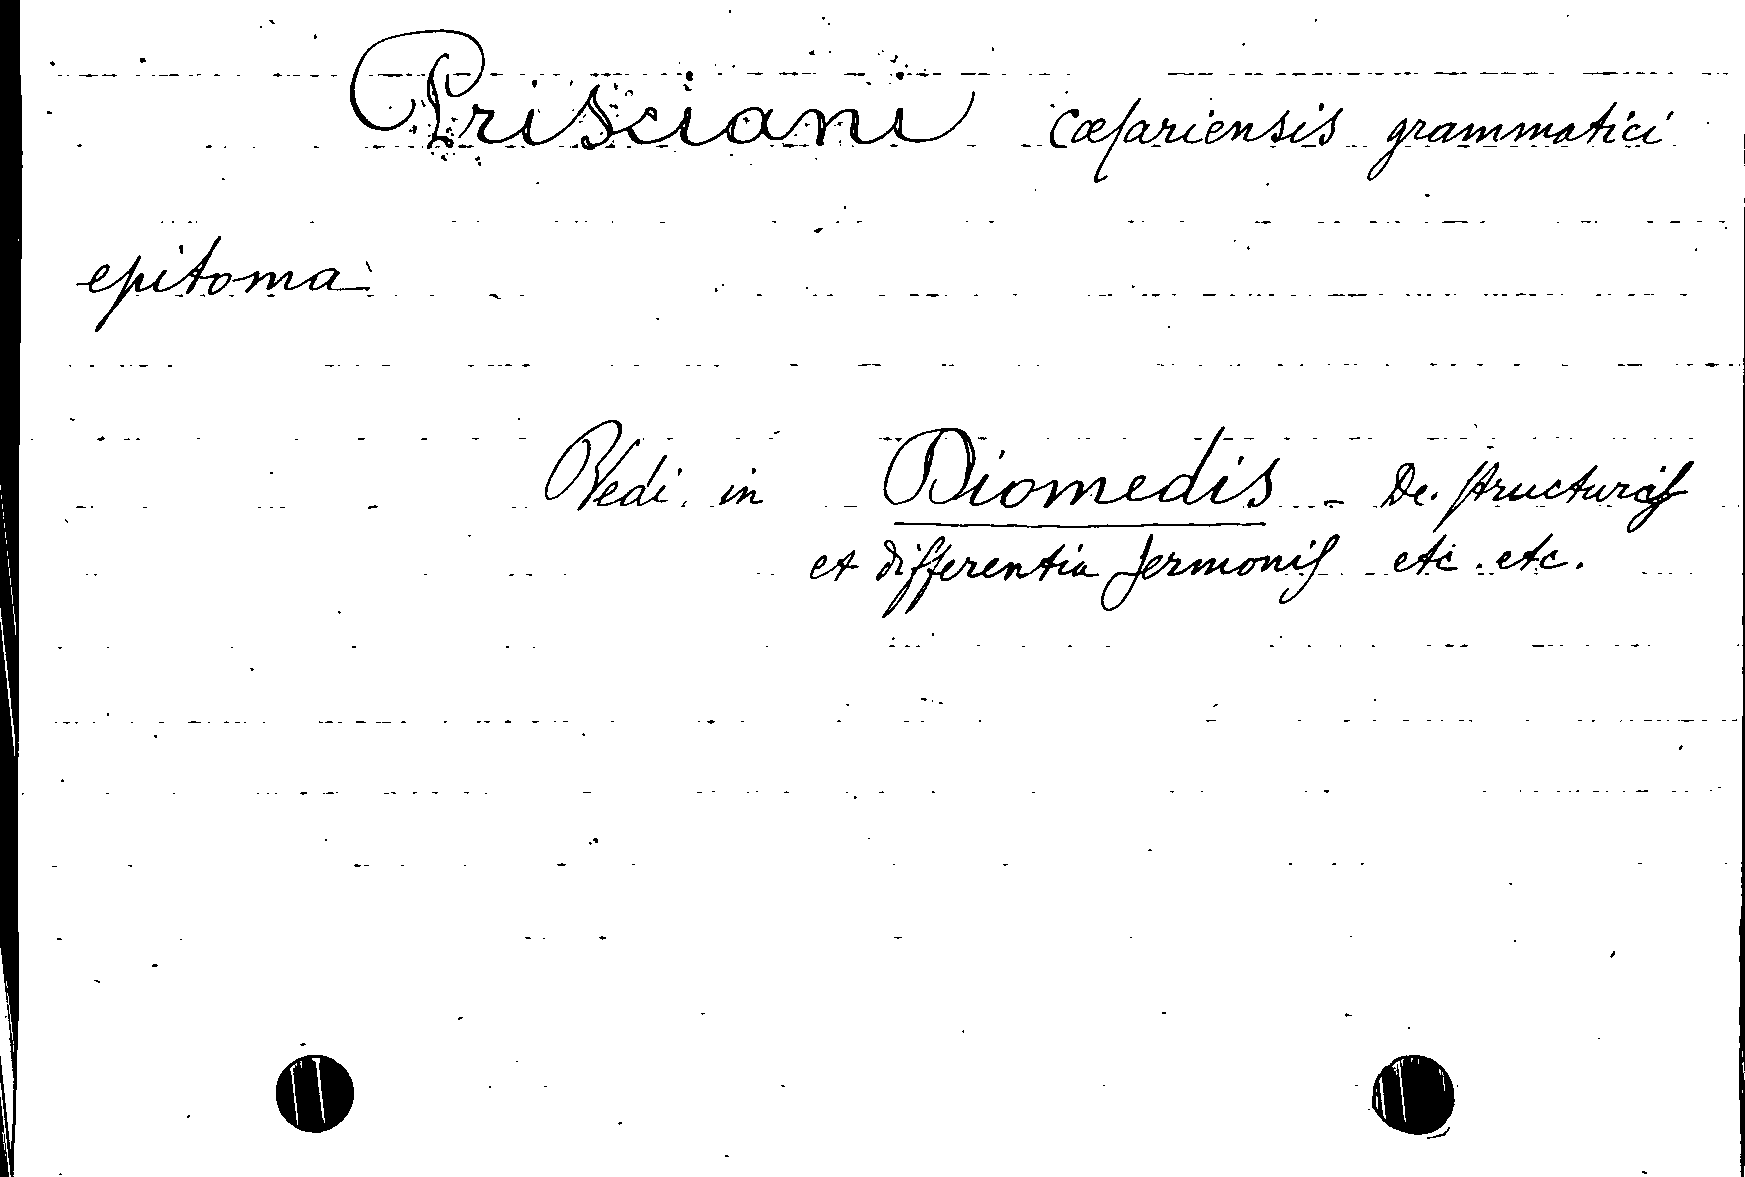 Prisciani cæſariensis grammatici
epitoma
Vedi in Diomedis - De ſtructuraſ
et differentia ſermoniſ etc. etc.